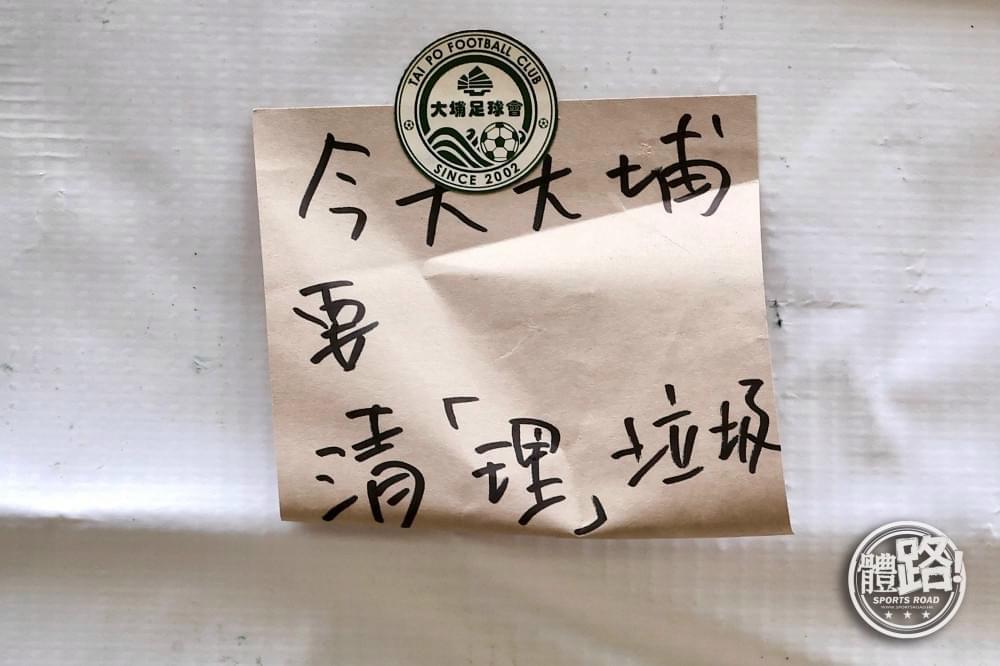 TAI PO FOOTBALL CLUB
大埔足球會
SINCE 2002
今天大埔
要
清「理」垃圾
體路!
SPORTS ROAD
WWW.SPORTSROAD.HK